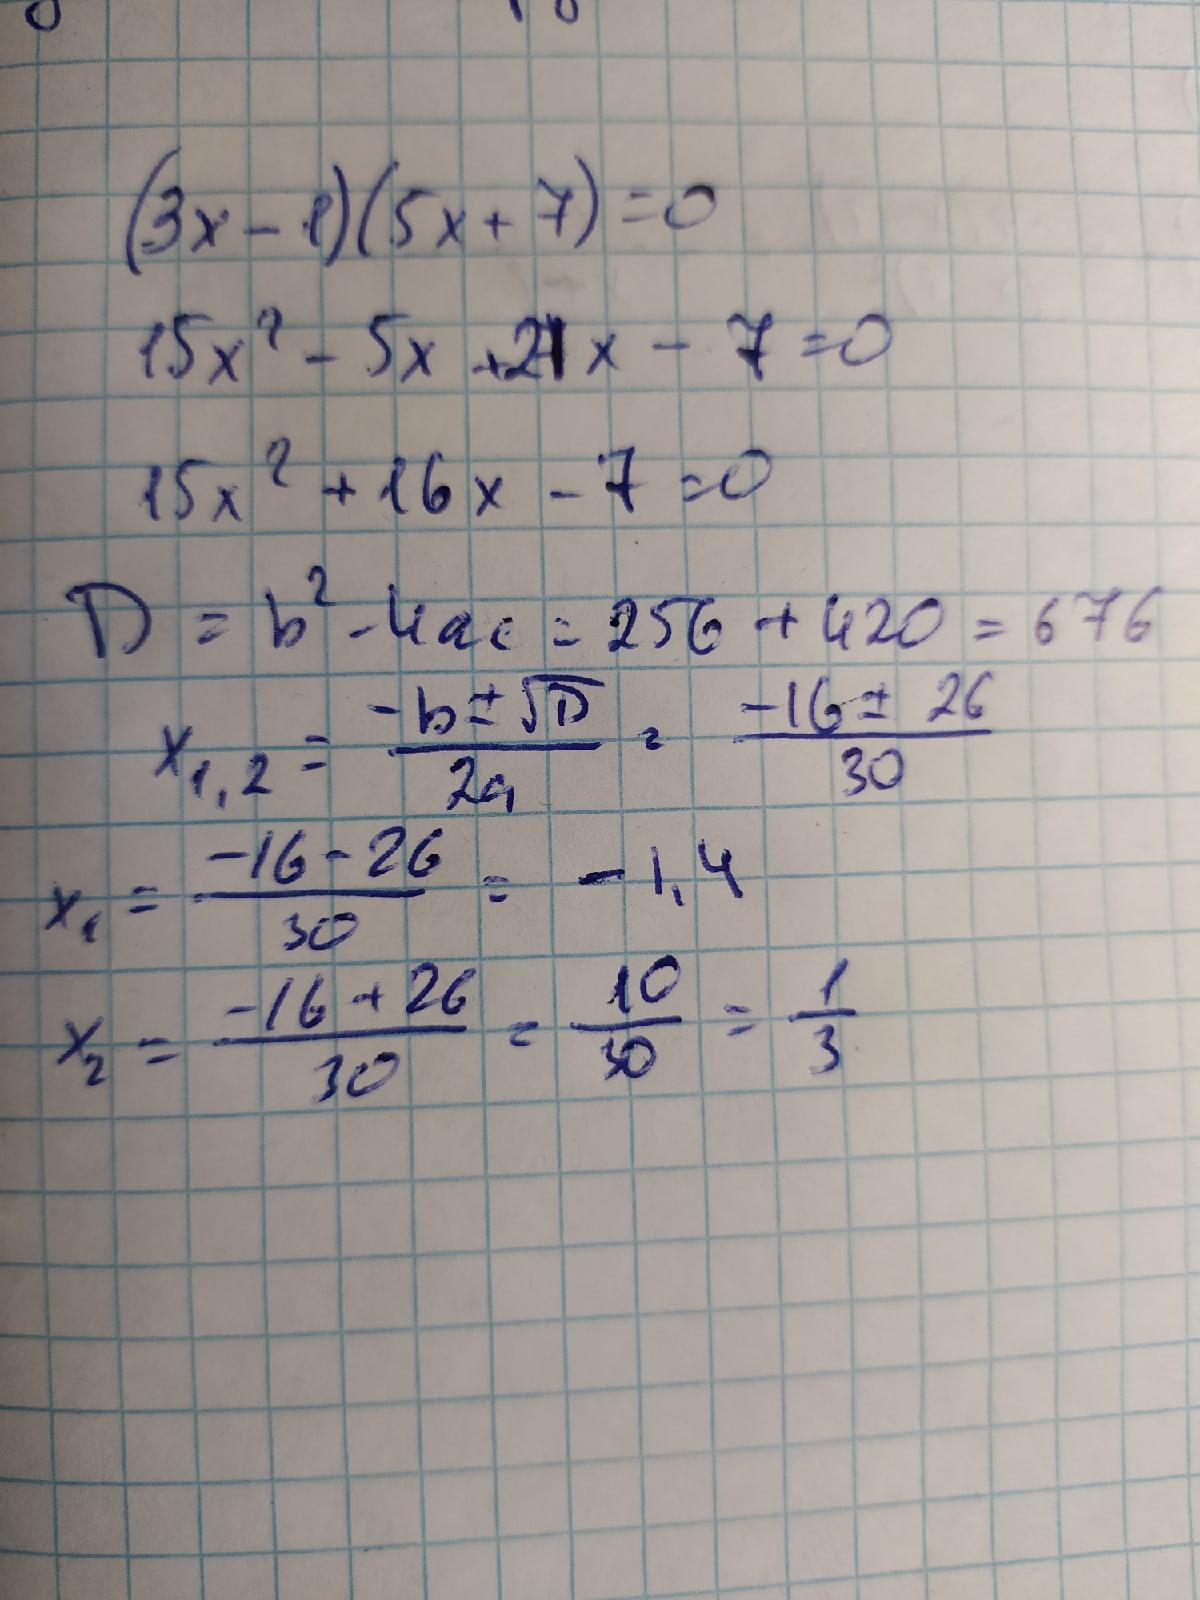 (3x - 1)(5x + 7) = 0
15x² - 5x + 21x - 7 = 0
15x² + 16x - 7 = 0
D = b² - 4ac = 256 + 420 = 676
x₁,₂ = (-b ± √D)/(2a) = (-16 ± 26)/30
x₁ = (-16 - 26)/30 = -1,4
x₂ = (-16 + 26)/30 = 10/30 = 1/3